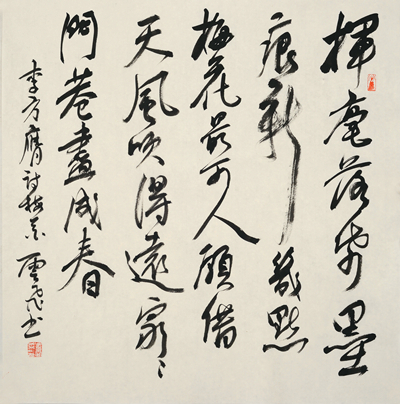 揮毫落紙墨
痕新幾點
梅花最可人願借
天風吹得遠家〻
門巷盡成春
李方膺詩梅花 雲飛书